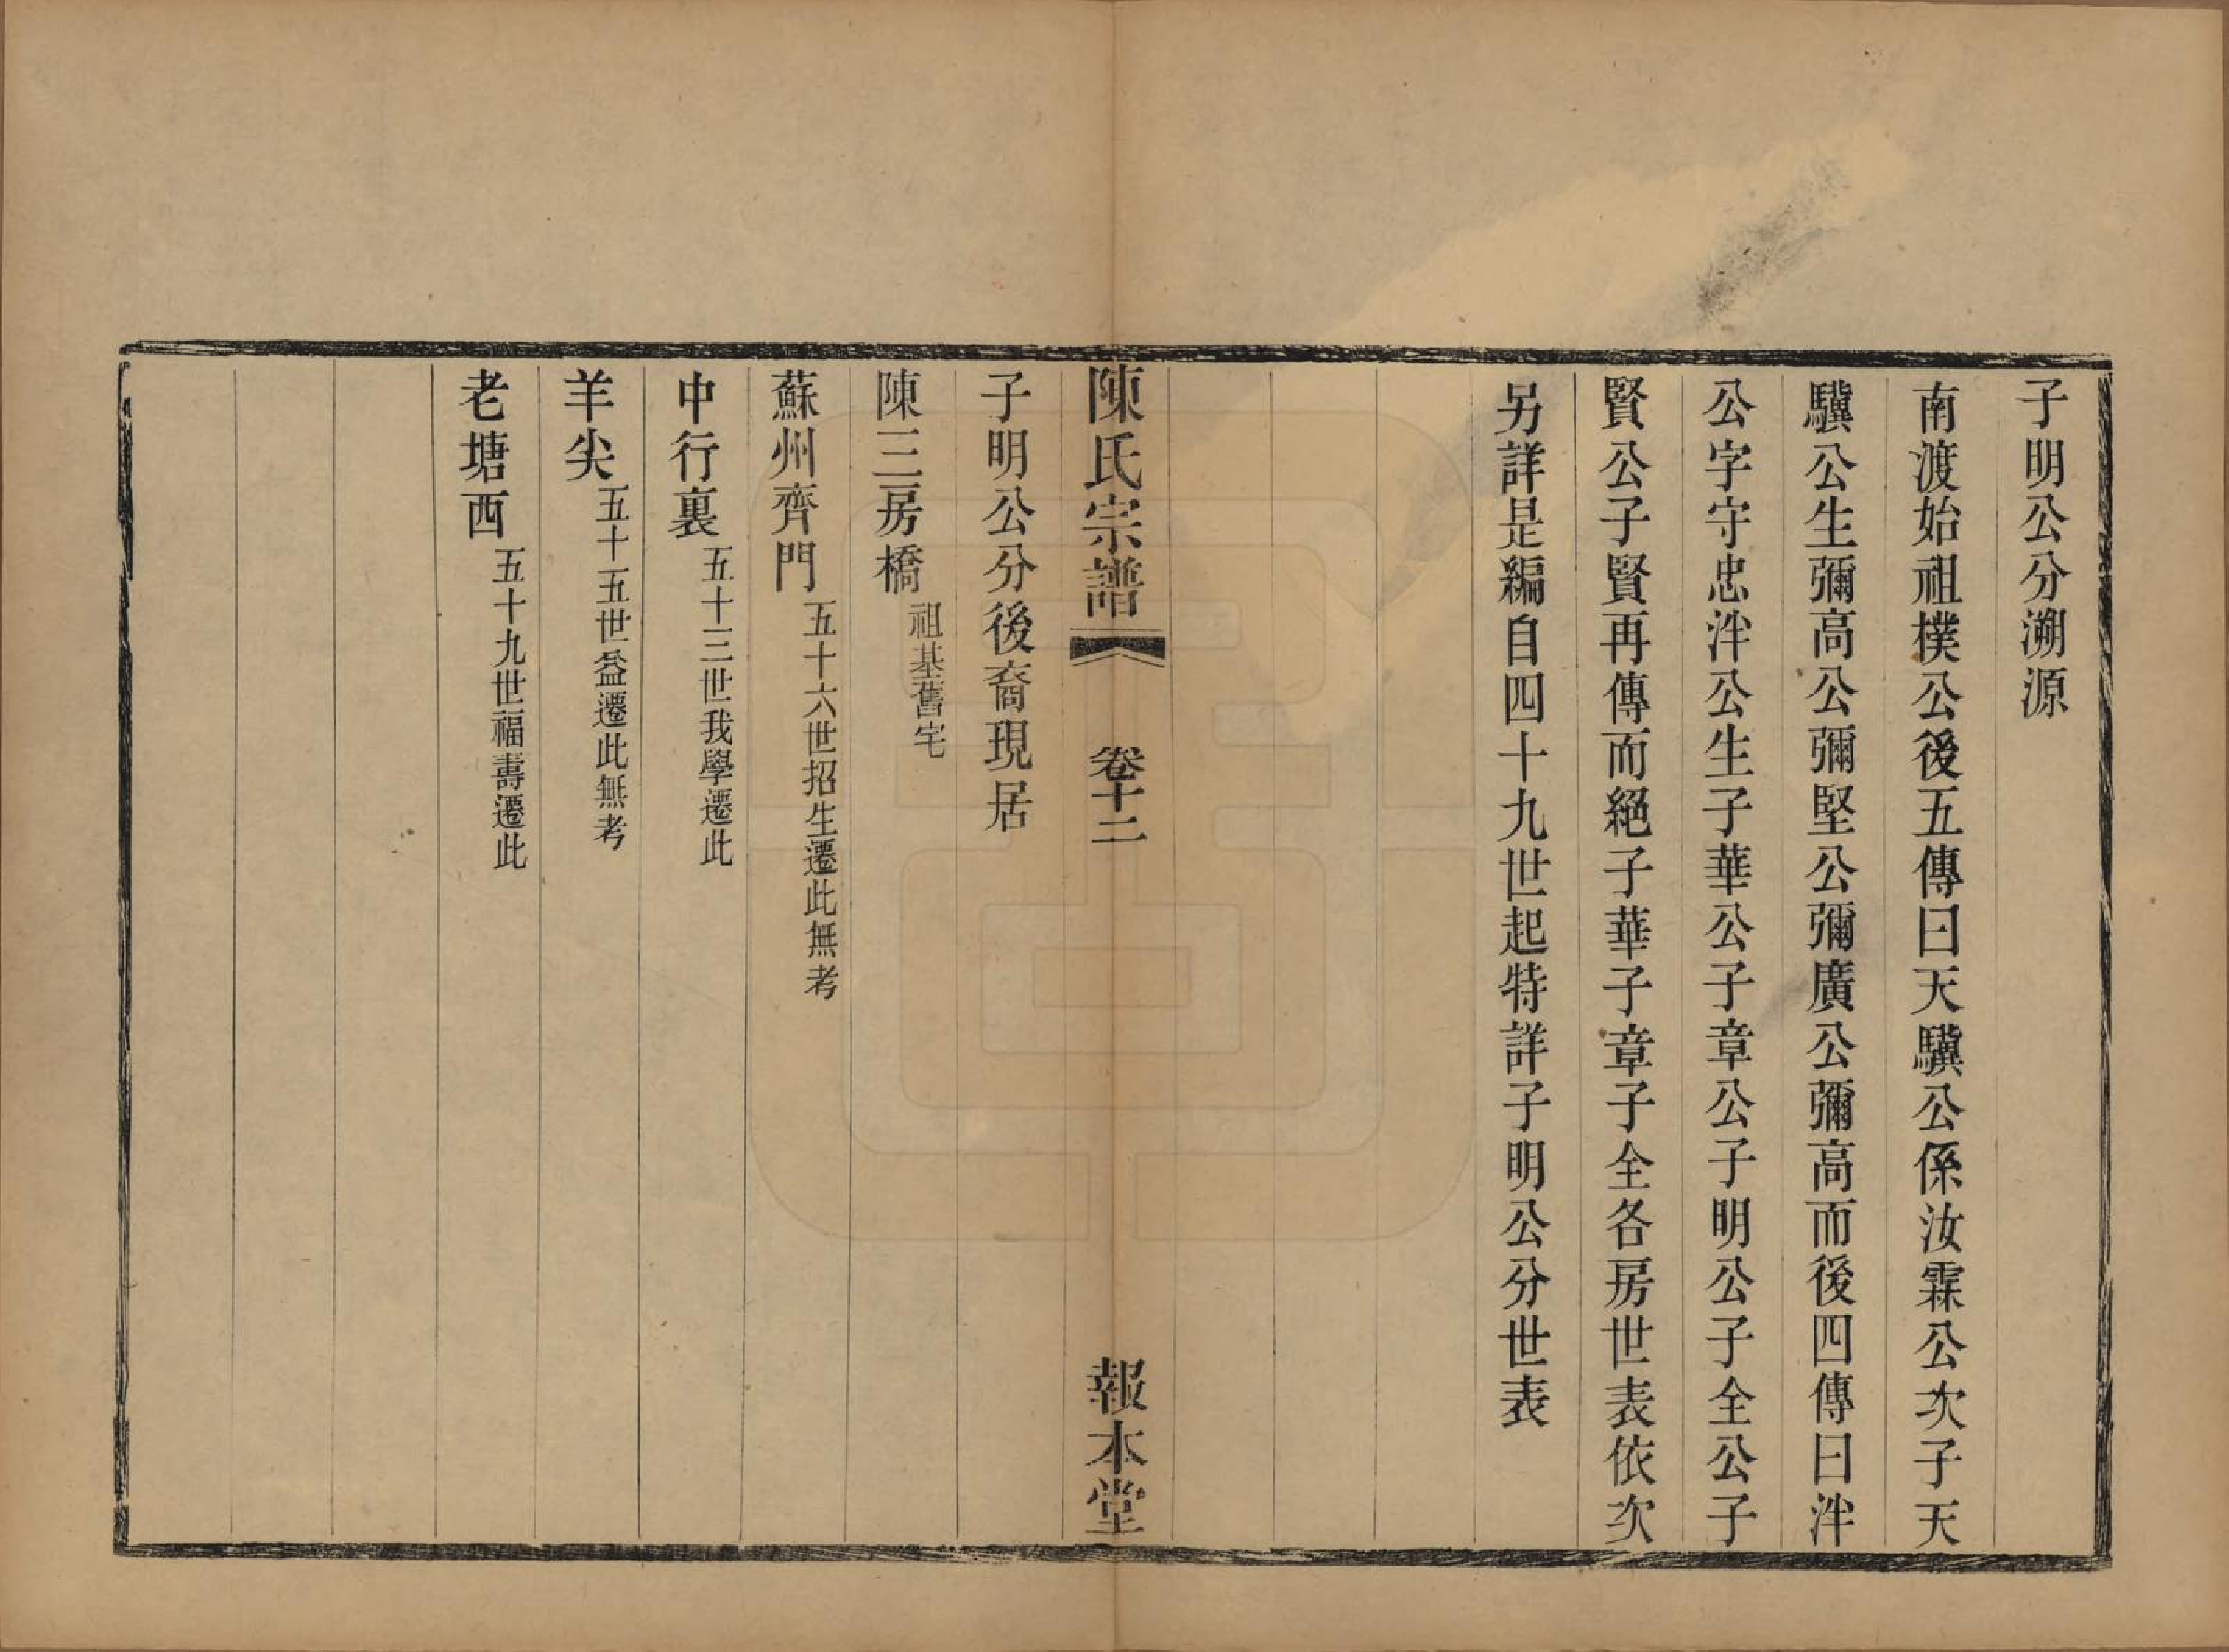 子明公分溯源
南渡始祖樸公後五傳曰天驥公係汝霖公次子天
驥公生彌高公彌堅公彌廣公彌高而後四傳曰泮
公字守忠泮公生子華公子章公子明公子全公子
賢公子賢再傳而絕子華子章子全各房世表依次
另詳是編自四十九世起特詳子明公分世表
陳氏宗譜 卷十二 報本堂
子明公分後裔現居
陳三房橋 祖基舊宅
蘇州齊門 五十六世招生遷此無考
中行裏 五十三世我學遷此
羊尖 五十五世益遷此無考
老塘西 五十九世福壽遷此